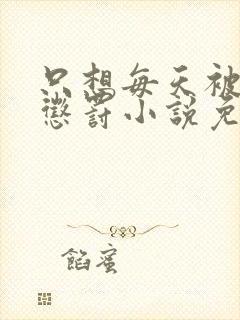 只想每天被
懲罰小說免
餡蜜